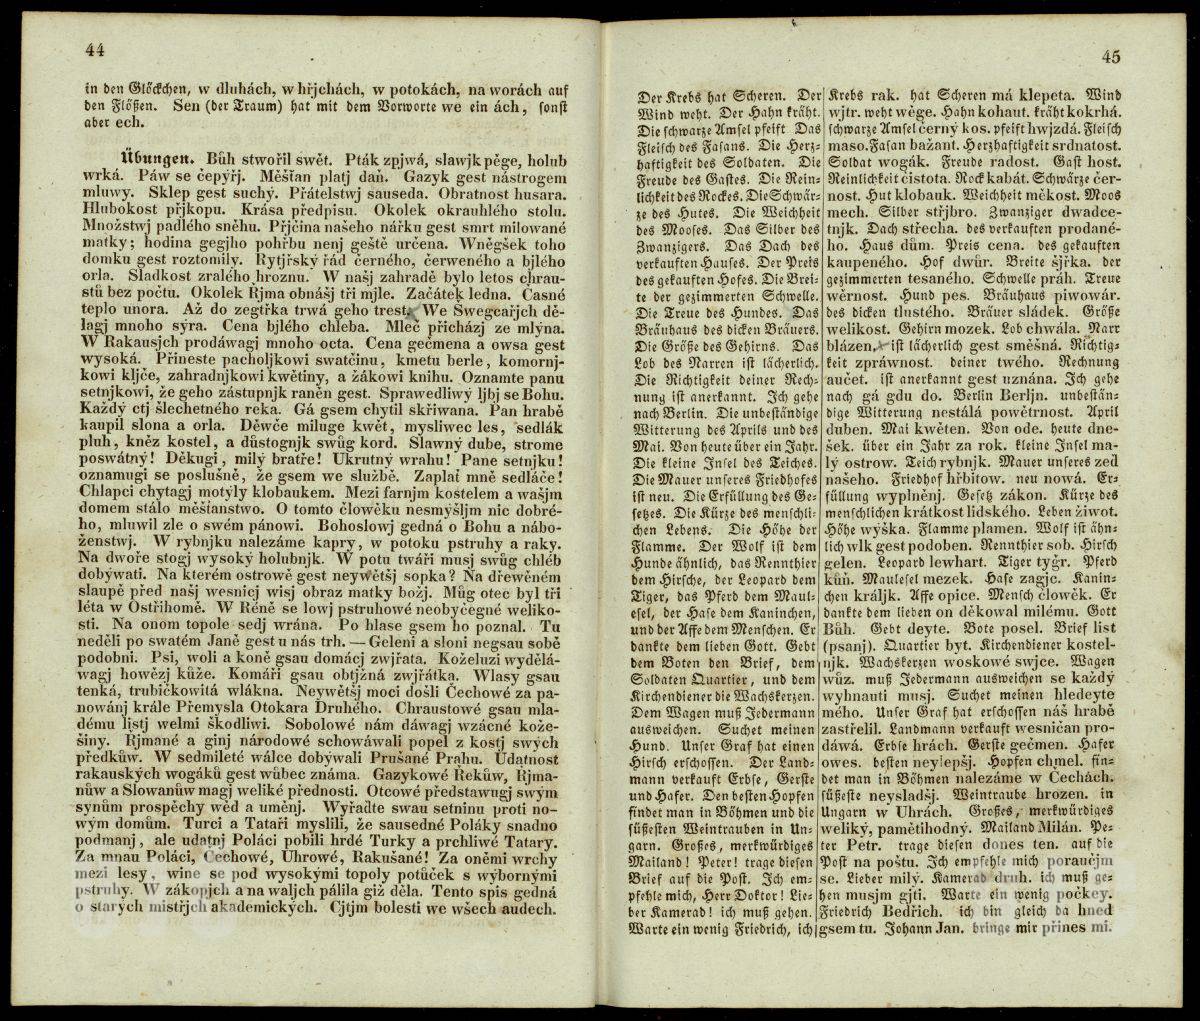 44
in den Glöckchen, w dluhách, w hřjchách, w potokách, na worách auf
den Flößen. Sen (der Traum) hat mit dem Vorworte we ein ách, sonst
aber ech.
Übungen. Bůh stwořil swět. Pták zpjwá, slawjk pěge, holub
wrká. Páw se čepýřj. Měšřan platj daň. Gazyk gest nástrogem
mluwy. Sklep gest suchý. Přátelstwj sauseda. Obratnost husara.
Hlubokost přjkopu. Krása předpisu. Okolek okrauhlého stolu.
Množstwj padlého sněhu. Přjčina našeho nářku gest smrt milowané
matky; hodina gegjho pohřbu nenj geště určena. Wněgšek toho
domku gest roztomilý. Rytjřský řád černého, čerweného a bjlého
orla. Sladkost zralého hroznu. W našj zahradě bylo letos chrau-
stů bez počtu. Okolek Řjma obnášj tři mjle. Začátek ledna. Časné
teplo unora. Až do zegtřka trwá geho trest. We Šwegcařjch dě-
lagj mnoho sýra. Cena bjlého chleba. Mleč přicházj ze mlýna.
W Rakausjch prodáwagj mnoho octa. Cena gečmena a owsa gest
wysoká. Přineste pacholjkowi swatčinu, kmetu berle, komornj-
kowi kljče, zahradnjkowi kwětiny, a žákowi knihu. Oznamte panu
setnjkowi, že geho zástupnjk raněn gest. Sprawedliwý ljbj se Bohu.
Každý ctj šlechetného reka. Gá gsem chytil skřiwana. Pan hrabě
kaupil slona a orla. Děwče miluge kwět, mysliwec les, sedlák
pluh, kněz kostel, a důstognjk swůg kord. Slawný dube, strome
poswátný! Děkugi, milý bratře! Ukrutný wrahu! Pane setnjku!
oznamugi se poslušně, že gsem we službě. Zaplať mně sedláče!
Chlapci chytagj motýly klobaukem. Mezi farnjm kostelem a wašjm
domem stálo měšťanstwo. O tomto člowěku nesmýšljm nic dobré-
ho, mluwil zle o swém pánowi. Bohoslowj gedná o Bohu a nábo-
ženstwj. W rybnjku nalezáme kapry, w potoku pstruhy a raky.
Na dwoře stogj wysoký holubnjk. W potu twáři musj swůg chléb
dobýwati. Na kterém ostrowě gest neywětšj sopka? Na dřewěném
slaupě před našj wesnicj wisj obraz matky božj. Můg otec byl tři
léta w Ostřihomě. W Réně se lowj pstruhowé neobyčegné weliko-
sti. Na onom topole sedj wrána. Po hlase gsem ho poznal. Tu
neděli po swatém Janě gest u nás trh. — Geleni a sloni negsau sobě
podobni. Psi, woli a koně gsau domácj zwjřata. Koželuzi wydělá-
wagj howězj kůže. Komáři gsau obtjžná zwjřátka. Wlasy gsau
tenká, trubičkowitá wlákna. Neywětšj moci došli Čechowé za pa-
nowánj krále Přemysla Otokara Druhého. Chraustowé gsau mla-
dému listj welmi škodliwi. Sobolowé nám dáwagj wzácné kože-
šiny. Rjmané a ginj národowé schowáwali popel z kostj swých
předkůw. W sedmileté wálce dobýwali Prušané Prahu. Udatnost
rakauských wogáků gest wůbec známa. Gazykowé Řekůw, Rjma-
nůw a Slowanůw magj weliké přednosti. Otcowé představugj swým
synům prospěchy wěd a uměnj. Wyřaďte swau setninu proti no-
wým domům. Turci a Tataři myslili, že sausedné Poláky snadno
podmanj, ale udatnj Poláci pobili hrdé Turky a prchliwé Tatary.
Za mnau Poláci, Čechowé, Uhrowé, Rakušané! Za oněmi wrchy
mezi lesy, wine se pod wysokými topoly potůček s wýbornými
pstruhy. W zákopjch a na waljch pálila giž děla. Tento spis gedná
o starých mistřjch akademických. Cjtjm bolesti we wšech audech.
45
Der Krebs hat Scheren. Der
Wind weht. Der Hahn kräht.
Die schwarze Amsel pfeift Das
Fleisch des Fasans. Die Herz-
haftigkeit des Soldaten. Die
Freude des Gastes. Die Rein-
lichkeit des Rockes. Die Schwär-
ze des Hutes. Die Weichheit
des Mooses. Das Silber des
Zwanzigers. Das Dach des
verkauften Hauses. Der Preis
des gekauften Hofes. Die Brei-
te der gezimmerten Schwelle.
Die Treue des Hundes. Das
Bräuhaus des dicken Bräuers.
Die Größe des Gehirns. Das
Lob des Narren ist lächerlich.
Die Richtigkeit deiner Rech-
nung ist anerkannt. Ich gehe
nach Berlin. Die unbeständige
Witterung des Aprils und des
Mai. Von heute über ein Jahr.
Die kleine Insel des Teiches.
Die Mauer unseres Friedhofes
ist neu. Die Erfüllung des Ge-
setzes. Die Kürze des menschli-
chen Lebens. Die Höhe der
Flamme. Der Wolf ist dem
Hunde ähnlich, das Rennthier
dem Hirsche, der Leopard dem
Tiger, das Pferd dem Maul-
esel, der Hase dem Kaninchen,
und der Affe dem Menschen. Er
dankte dem lieben Gott. Gebt
dem Boten den Brief, dem
Soldaten Quartier, und dem
Kirchendiener die Wachskerzen.
Dem Wagen muß Jedermann
ausweichen. Suchet meinen
Hund. Unser Graf hat einen
Hirsch erschossen. Der Land-
mann verkauft Erbse, Gerste
und Hafer. Den besten Hopfen
findet man in Böhmen und die
süßesten Weintrauben in Un-
garn. Großes, merkwürdiges
Mailand! Peter! trage diesen
Brief auf die Post. Ich em-
pfehle mich, Herr Doktor! Lie-
ber Kamerad! ich muß gehen.
Warte ein wenig Friedrich, ich
Krebs rak. hat Scheren má klepeta. Wind
wjtr. weht wěge. Hahn kohaut. kräht kokrhá.
schwarze Amsel černý kos. pfeift hwjzdá. Fleisch
maso. Fasan bažant. Herzhaftigkeit srdnatost.
Soldat wogák. Freude radost. Gast host.
Reinlichkeit čistota. Rock kabát. Schwärze čer-
nost. Hut klobauk. Weichheit měkost. Moos
mech. Silber střjbro. Zwanziger dwadce-
tnjk. Dach střecha. des verkauften prodané-
ho. Haus dům. Preis cena. des gekauften
kaupeného. Hof dwůr. Breite šjřka. der
gezimmerten tesaného. Schwelle práh. Treue
wěrnost. Hund pes. Bräuhaus piwowár.
des dicken tlustého. Bräuer sládek. Größe
welikost. Gehirn mozek. Lob chwála. Narr
blázen. ist lächerlich gest směšná. Richtig-
keit zpráwnost. deiner twého. Rechnung
aučet. ist anerkannt gest uznána. Ich gehe
nach gá gdu do. Berlin Berljn. unbestän-
dige Witterung nestálá powětrnost. April
duben. Mai kwěten. Von ode. heute dne-
šek. über ein Jahr za rok. kleine Insel ma-
lý ostrow. Teich rybnjk. Mauer unseres zeď
našeho. Friedhof hřbitow. neu nowá. Er-
füllung wyplněnj. Gesetz zákon. Kürze des
menschlichen krátkost lidského. Leben žiwot.
Höhe wýška. Flamme plamen. Wolf ist ähn-
lich wlk gest podoben. Rennthier sob. Hirsch
gelen. Leopard lewhart. Tiger tygr. Pferd
kůň. Maulesel mezek. Hase zagjc. Kanin-
chen králjk. Affe opice. Mensch člowěk. Er
dankte dem lieben on děkowal milému. Gott
Bůh. Gebt deyte. Bote posel. Brief list
(psanj). Quartier byt. Kirchendiener kostel-
njk. Wachskerzen woskowé swjce. Wagen
wůz. muß Jedermann ausweichen se každý
wyhnauti musj. Suchet meinen hledeyte
mého. Unser Graf hat erschossen náš hrabě
zastřelil. Landmann verkauft wesničan pro-
dáwá. Erbse hrách. Gerste gečmen. Hafer
owes. besten neylepšj. Hopfen chmel. fin-
det man in Böhmen nalezáme w Čechách.
süßeste neysladšj. Weintraube hrozen. in
Ungarn w Uhrách. Großes, merkwürdiges
weliký, pamětihodný. Mailand Milán. Pe-
ter Petr. trage diesen dones ten. auf die
Post na poštu. Ich empfehle mich poraučjm
se. Lieber milý. Kamerad druh. ich muß ge-
hen musjm gjti. Warte ein wenig počkey.
Friedrich Bedřich. ich bin gleich da hned
gsem tu. Johann Jan. bringe mir přines mi.